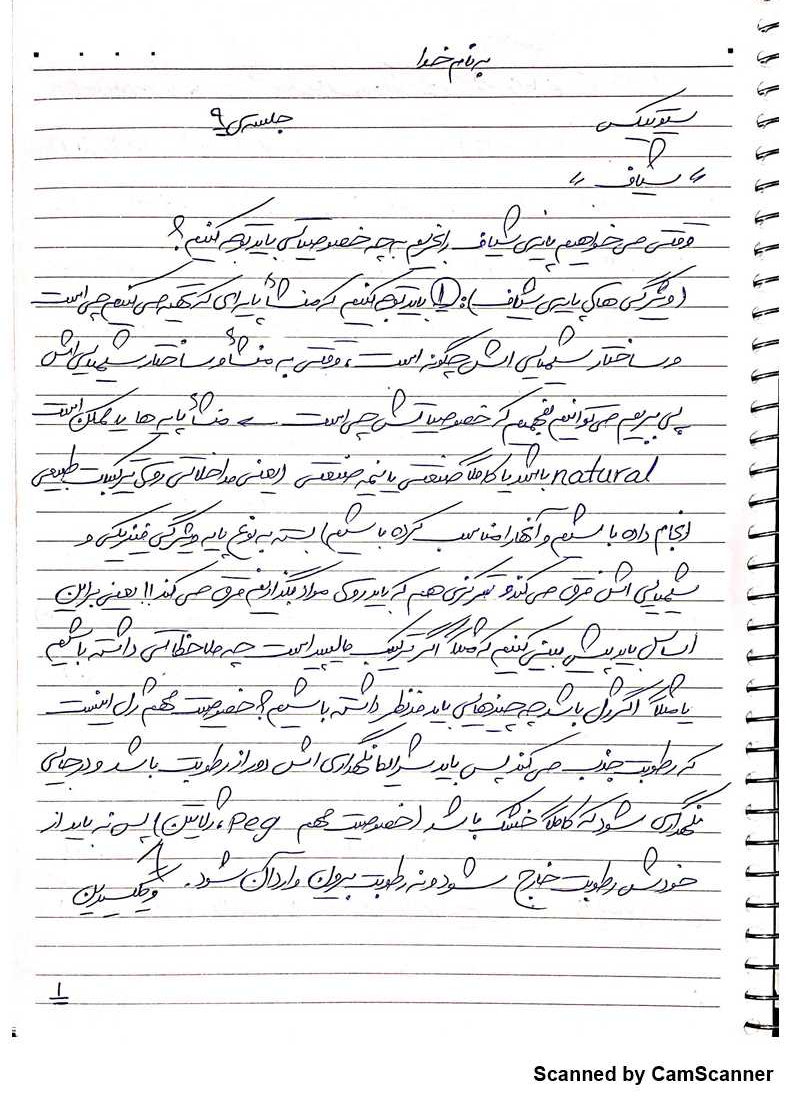 به نام خدا
جلسه‌ی ۹
"شیاف"
وقتی می خواهیم پایه‌ی شیاف را بخریم به چه خصوصیاتی باید توجه کنیم؟
(ویژگی های پایه‌ی شیاف): ① باید توجه کنیم که منشأ پایه ای که تهیه می کنیم چی است
و ساختار شیمیایی اش چگونه است، وقتی به منشأ و ساختار شیمیایی اش
پی ببریم می توانیم بفهمیم که خصوصیاتش چی است ← منشأ پایه ها یا ممکن است
natural باشد یا کاملاً صنعتی یا نیمه صنعتی (یعنی مداخلاتی روی ترکیبات طبیعی
انجام داده باشیم و آنها را مناسب کرده باشیم) بسته به نوع پایه ویژگی فیزیکی و
شیمیایی اش فرق می کند و تمرکزی هم که باید روی مواد بگذاریم فرق می کند!! یعنی براین
اساس باید پیش بینی کنیم که مثلاً اگر ترکیب گلیسیر است چه ملاحظاتی داشته باشیم
یا مثلاً اگر ژل باشد چه چیزهایی باید مدنظر داشته باشیم؟ خصوصیت مهم ژل اینست
که رطوبت جذب می کند پس باید شرایط نگهداری اش دور از رطوبت باشد و در جایی
نگهداری شود که کاملاً خشک باشد (خصوصیت مهم Peg، ژلاتین) پس نه باید از
خودش رطوبت خارج شود و نه رطوبت بیرون وارد آن شود.
و گلیسیرین
۱
Scanned by CamScanner